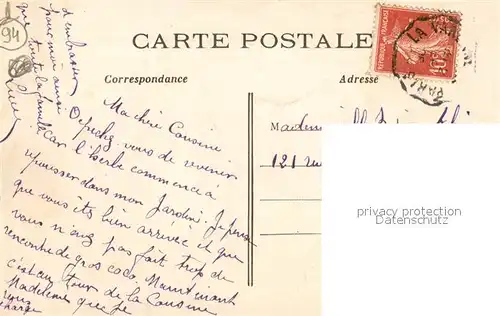 94
CARTE POSTALE
RÉPUBLIQUE FRANÇAISE
10
LA VARENNE
PARIS
Correspondance
Adresse
d'embrasser
pour moi ainsi
que toute la famille
Ma chère Cousine
Depechez vous de revenir
Car l'herbe commence à
repousser dans mon Jardin. Je pense
que vous êtes bien arrivée et que
vous n'avez pas fait trop de
rencontre de gros coco. Maintenant
c'est au tour de la Cousine
Madeleine que je
vous
charge
Mademoiselle
121 rue
privacy protection
Datenschutz